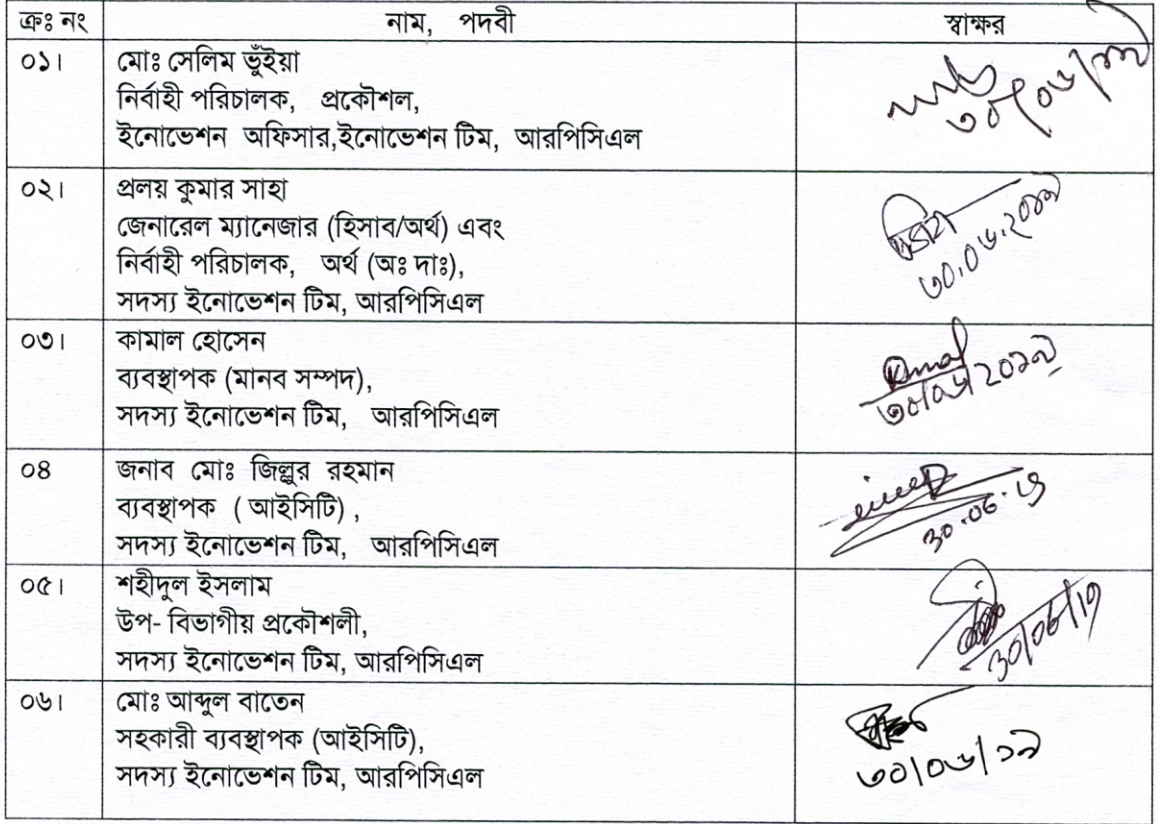 ক্রঃ নং নাম, পদবী স্বাক্ষর
০১। মোঃ সেলিম ভুঁইয়া
নির্বাহী পরিচালক, প্রকৌশল,
ইনোভেশন অফিসার,ইনোভেশন টিম, আরপিসিএল
৩০/০৬/১৯
০২। প্রলয় কুমার সাহা
জেনারেল ম্যানেজার (হিসাব/অর্থ) এবং
নির্বাহী পরিচালক, অর্থ (অঃ দাঃ),
সদস্য ইনোভেশন টিম, আরপিসিএল
৩০.০৬.২০১৯
০৩। কামাল হোসেন
ব্যবস্থাপক (মানব সম্পদ),
সদস্য ইনোভেশন টিম, আরপিসিএল
৩০/০৬/২০১৯
০৪ জনাব মোঃ জিল্লুর রহমান
ব্যবস্থাপক ( আইসিটি) ,
সদস্য ইনোভেশন টিম, আরপিসিএল
30.06.19
০৫। শহীদুল ইসলাম
উপ- বিভাগীয় প্রকৌশলী,
সদস্য ইনোভেশন টিম, আরপিসিএল
30/06/19
০৬। মোঃ আব্দুল বাতেন
সহকারী ব্যবস্থাপক (আইসিটি),
সদস্য ইনোভেশন টিম, আরপিসিএল
৩০/০৬/১৯